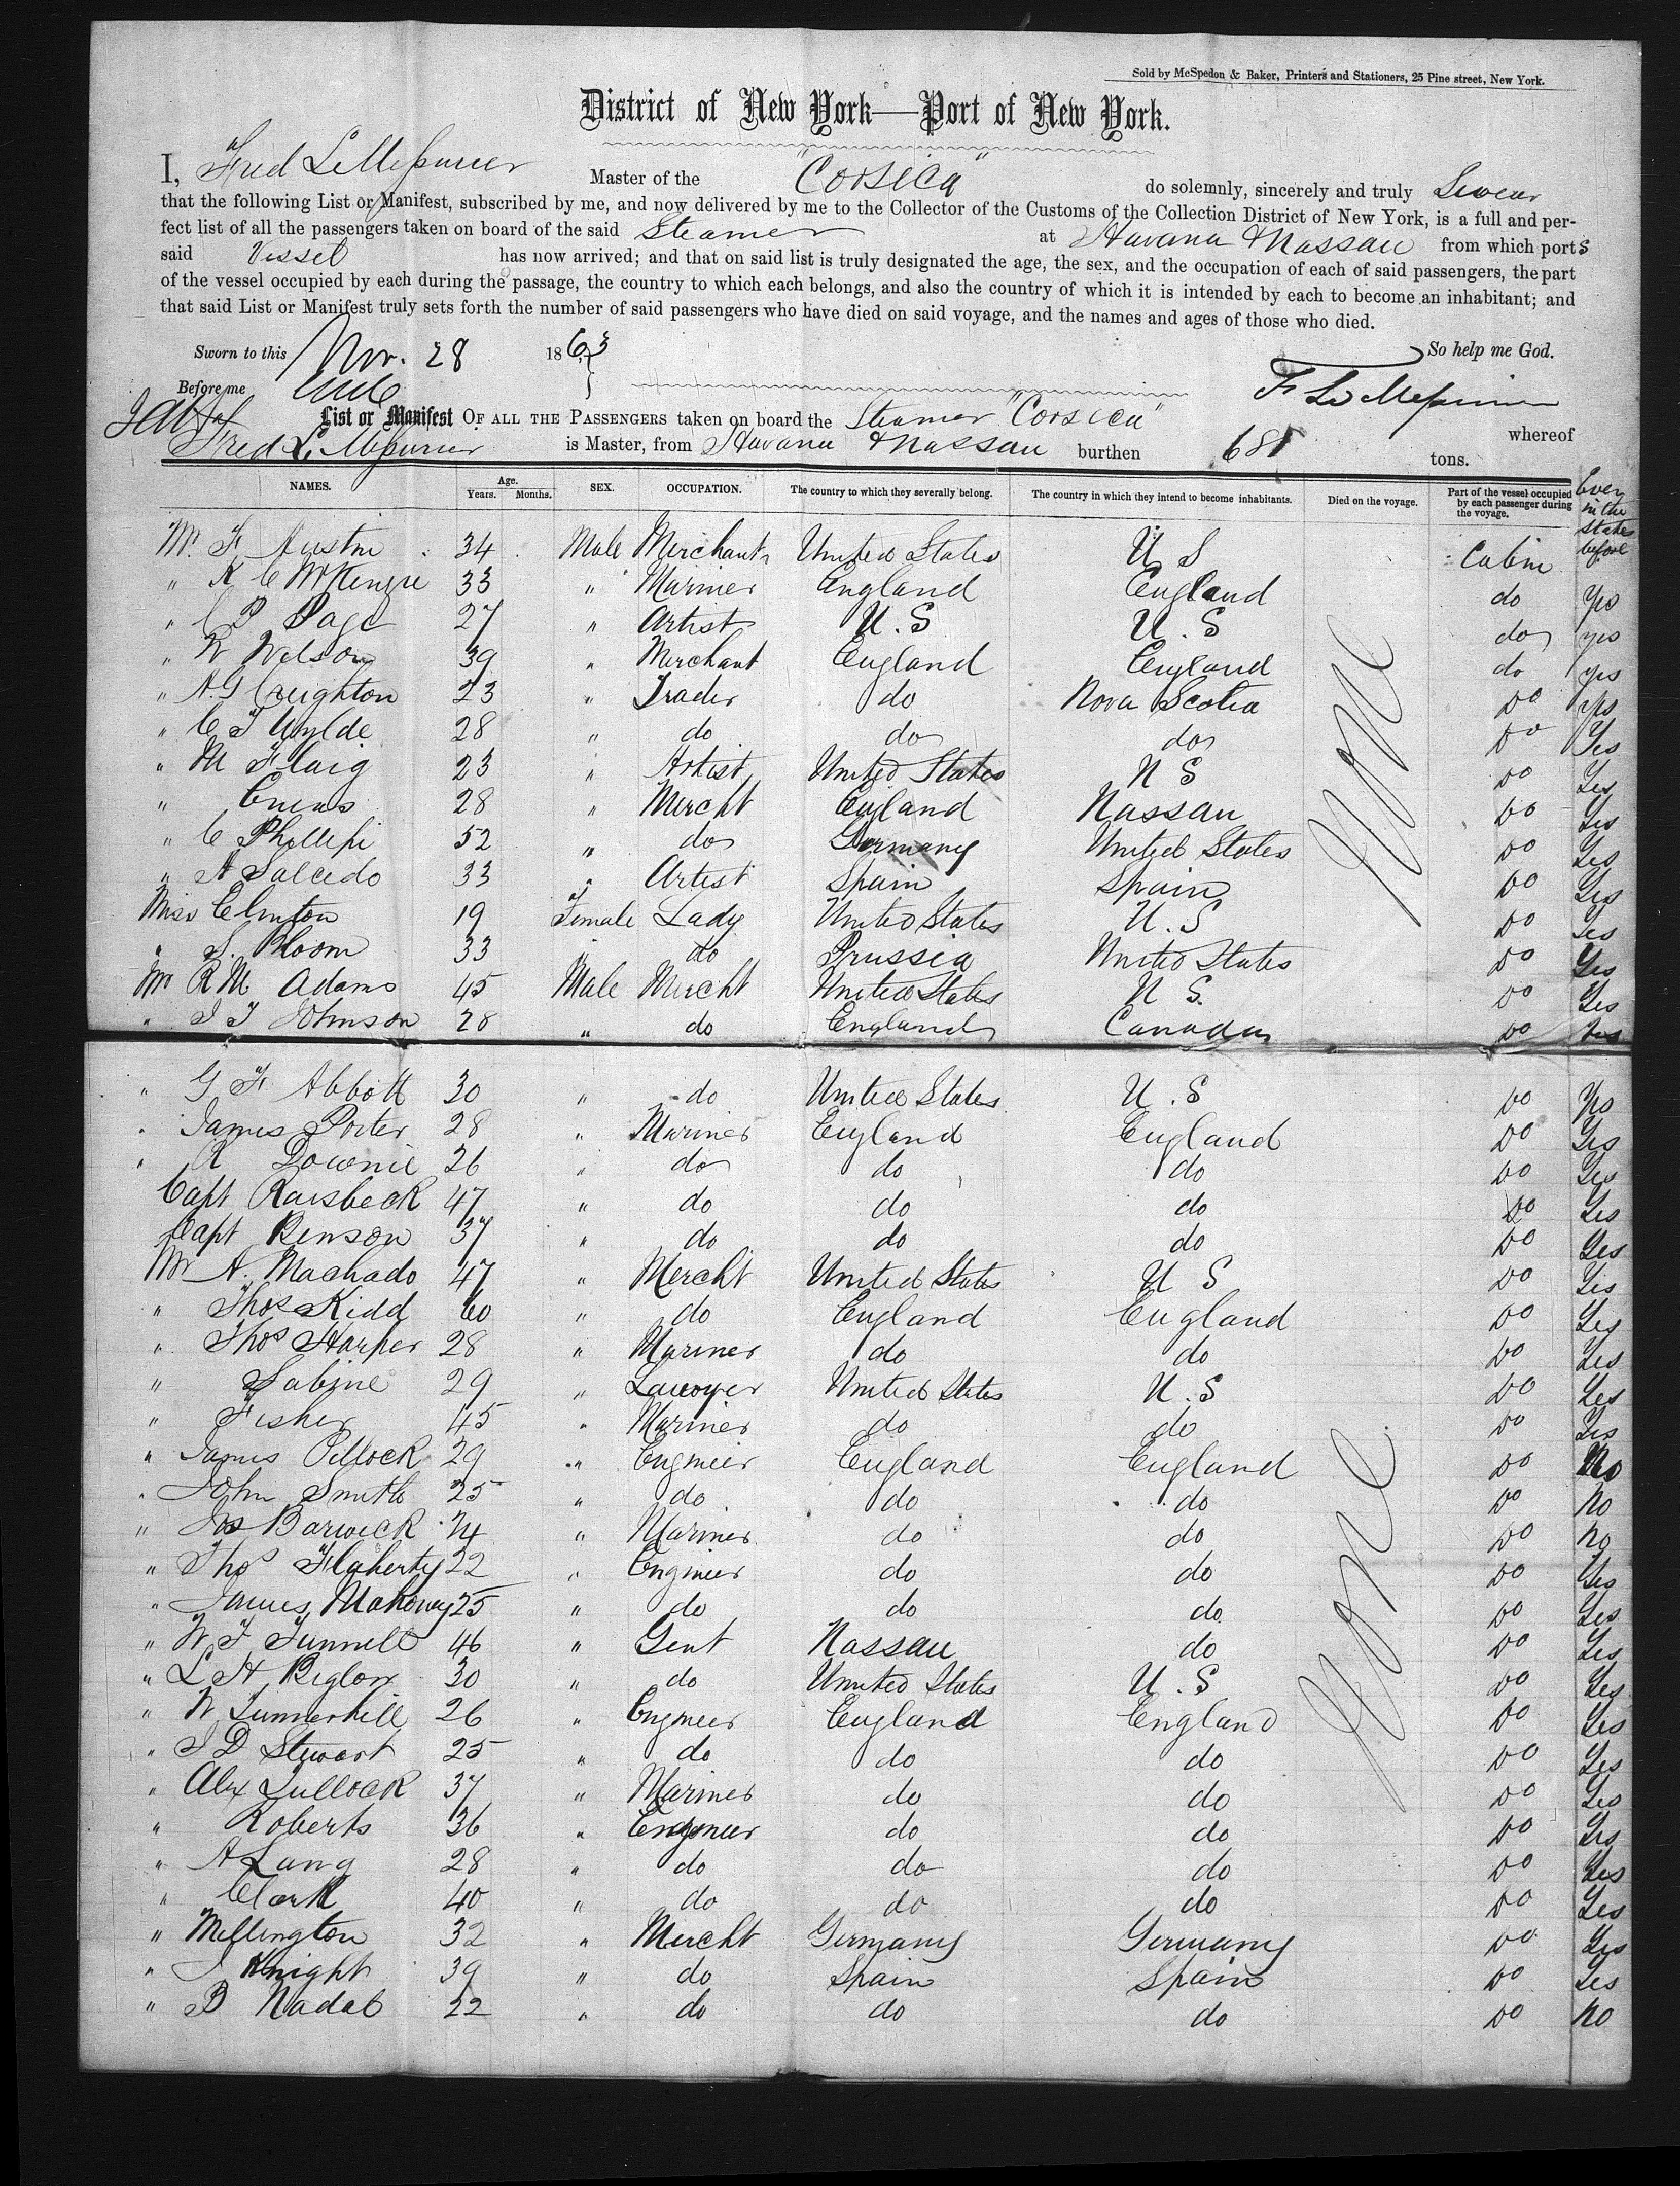 Sold by McSpedon & Baker, Printers and Stationers, 25 Pine street, New York.
District of New York—Port of New York.
I, Fred LeMesurier Master of the "Corsica" do solemnly, sincerely and truly Swear
that the following List or Manifest, subscribed by me, and now delivered by me to the Collector of the Customs of the Collection District of New York, is a full and per-
fect list of all the passengers taken on board of the said Steamer at Havana & Nassau from which ports
said Vessel has now arrived; and that on said list is truly designated the age, the sex, and the occupation of each of said passengers, the part
of the vessel occupied by each during the passage, the country to which each belongs, and also the country of which it is intended by each to become an inhabitant; and
that said List or Manifest truly sets forth the number of said passengers who have died on said voyage, and the names and ages of those who died.
Sworn to this Nov. 28 1863 So help me God.
Before me F LeMesurier
List or Manifest OF ALL THE PASSENGERS taken on board the Steamer "Corsica" whereof
Fred LeMesurier is Master, from Havana & Nassau burthen tons.
NAMES. Age. Years. Months. SEX. OCCUPATION. The country to which they severally belong. The country in which they intend to become inhabitants. Died on the voyage. Part of the vessel occupied by each passenger during the voyage. Ever in the States before
Mr. F Austin 34 Male Merchant United States U S Cabin
" K C McKenzie 33 " Mariner England England do Yes
" C P Page 27 " Artist U.S U.S do yes
" W Wilson 39 " Merchant England England do yes
" A.G Creighton 23 " Trader do Nova Scotia Do yes
" C T Wylde 28 " do do do Do Yes
" M Flaig 23 " Artist United States U S Do Yes
" 28 " Mercht England Nassau Do Yes
" C Phillipi 52 " do Germany United States Do Yes
" A Salcedo 33 " Artist Spain Spain Do Yes
Miss Clinton 19 Female Lady United States U.S Do Yes
" S. Bloom 33 " do Prussia United States Do Yes
Mr R M Adams 45 Male Mercht United States U S. Do Yes
" J T Johnson 28 " do England Canada Do Yes
" G F Abbott 30 " do United States U.S Do Yes
" James Porter 28 " Mariner England England Do Yes
" R Downie 26 " do do do Do Yes
Capt Raisbeck 47 " do do do Do Yes
Capt Benson 37 " do do do Do Yes
Mr A. Machado 47 " Mercht United States U S Do Yes
" Thos Kidd 60 " do England England Do Yes
" Thos Harper 28 " Mariner do do Do Yes
" Sabine 29 " Lawyer United States U.S Do Yes
" Fisher 45 " Mariner do do Do Yes
" James Pollock 29 " Engineer England England Do No
" John Smith 25 " do do do Do No
" Jas Barwick 24 " Mariner do do Do No
" Thos Flaherty 22 " Engineer do do Do Yes
" James Mahony 25 " do do do Do Yes
" W F Tunnell 46 " Gent Nassau do Do Yes
" L H Biglow 30 " do United States U.S Do Yes
" W Tunnerhill 26 " Engineer England England Do Yes
" J D Stewart 25 " do do do Do Yes
" Alex Tullock 37 " Mariner do do Do Yes
" Roberts 36 " Engineer do do Do Yes
" A Lang 28 " do do do Do Yes
" Clark 40 " do do do Do Yes
" Millington 32 " Mercht Germany Germany Do Yes
" J Knight 39 " do Spain Spain Do Yes
" B Nadal 22 " do do do Do No
None
None